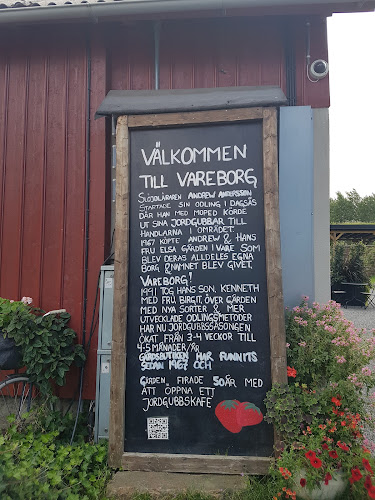 VÄLKOMMEN
TILL VAREBORG
SLÖJDLÄRAREN ANDREW ANDERSSON
STARTADE SIN ODLING I DAGSÅS
DÄR HAN MED MOPED KÖRDE
UT SINA JORDGUBBAR TILL
HANDLARNA I OMRÅDET.
1967 KÖPTE ANDREW & HANS
FRU ELSA GÅRDEN I VARE SOM
BLEV DERAS ALLDELES EGNA
BORG & NAMNET BLEV GIVET,
VAREBORG!
1991 TOG HANS SON, KENNETH
MED FRU, BIRGIT, ÖVER GÅRDEN
MED NYA SORTER & MER
UTVECKLADE ODLINGSMETODER
HAR NU JORDGUBBSSÄSONGEN
ÖKAT FRÅN 3-4 VECKOR TILL
4-5 MÅNADER/ÅR
GÅRDSBUTIKEN HAR FUNNITS
SEDAN 1967 OCH
GÅRDEN FIRADE 50ÅR MED
ATT ÖPPNA ETT
JORDGUBBSKAFE